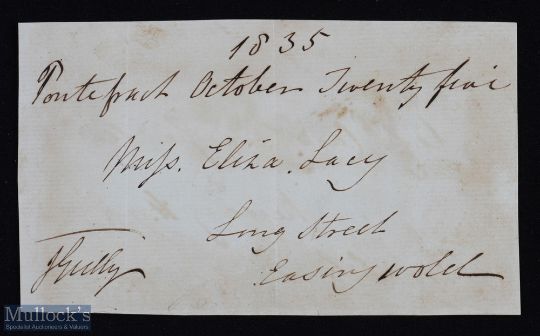 1835
Pontefract October Twenty five
Miss. Eliza. Lacy
Long Street
JGully
Easingwold
Mullock's
Specialist Auctioneers & Valuers